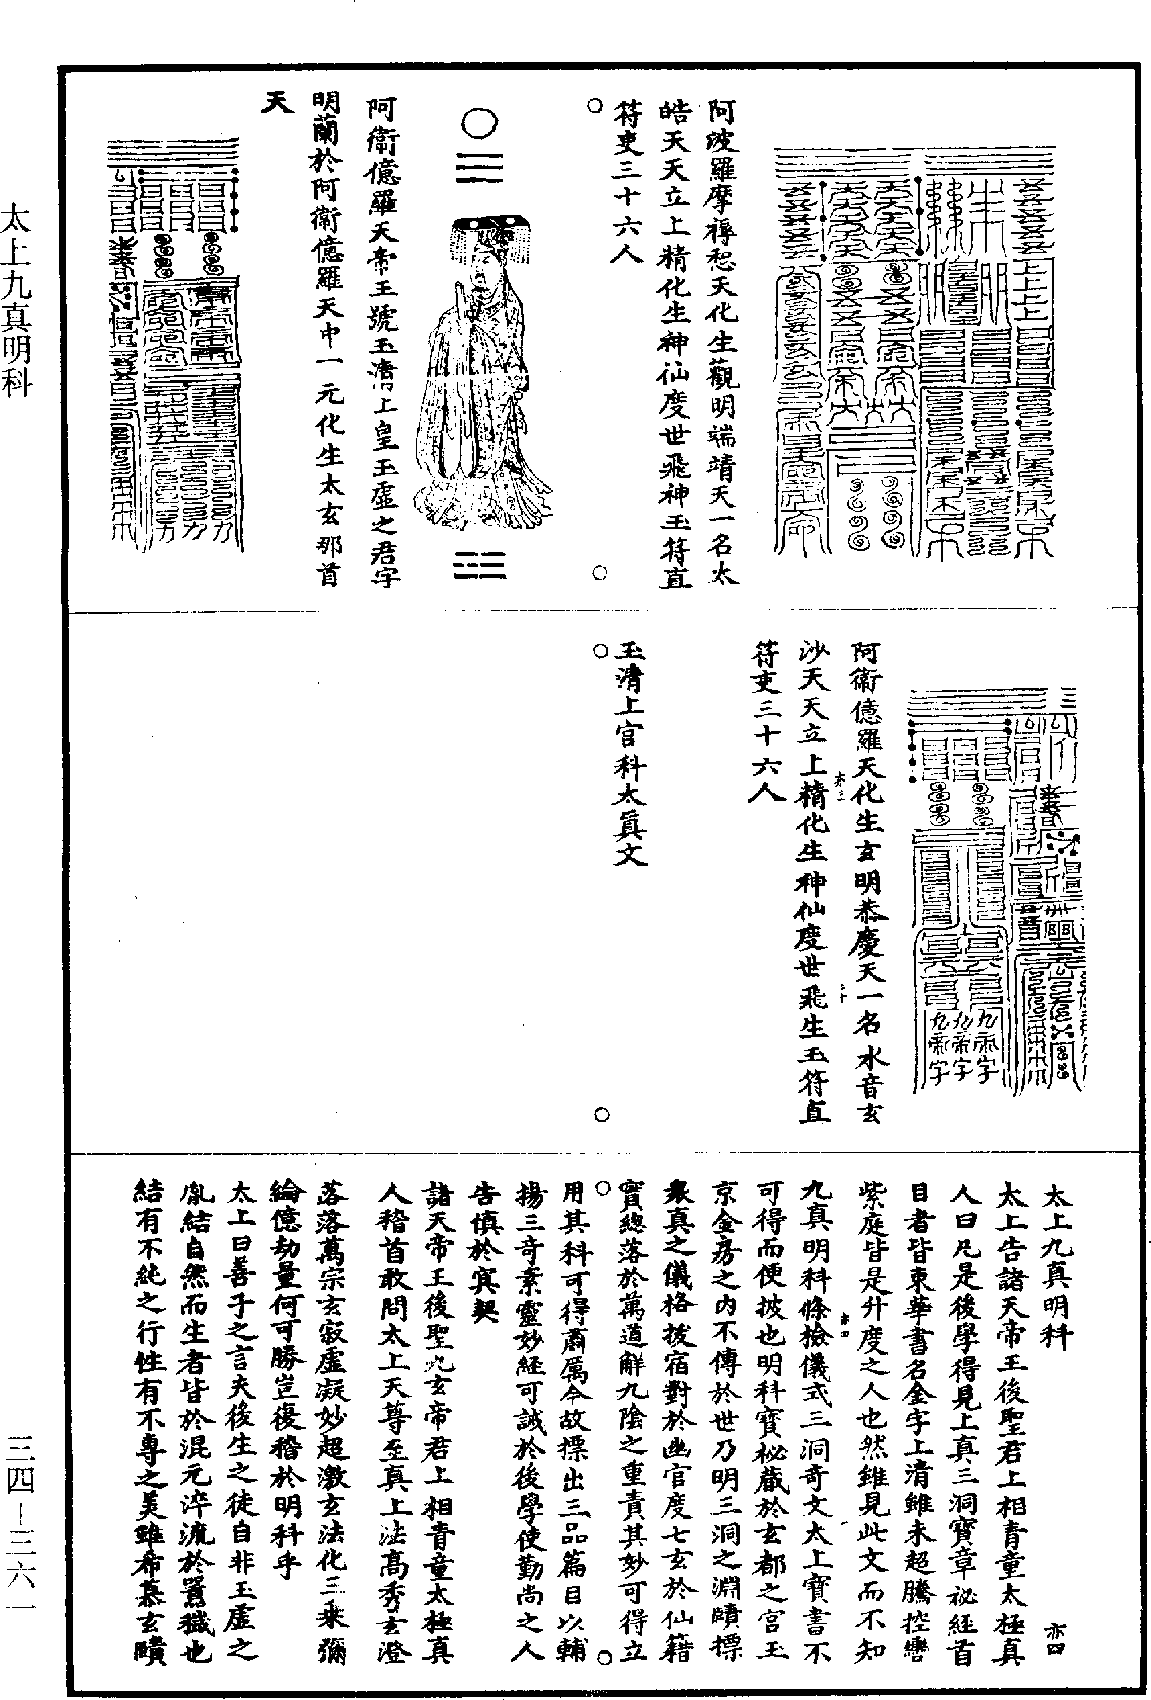 阿波羅摩禪愁天化生觀明端靖天一名太
皓天天立上精化生神仙度世飛神玉符直
符吏三十六人
阿衛億羅天帝王號玉清上皇玉虛之君字
明蘭於阿衛億羅天中一元化生太玄那首
天
阿衛億羅天化生玄明恭慶天一名水音玄
沙天天立上精化生神仙度世飛生玉符直
符吏三十六人
玉清上宫科太真文
太上九真明科
亦四
太上告諸天帝王後聖君上相青童太極真
人曰凡是後學得見上真三洞寶章祕經首
目者皆東華書名金字上清雖未超騰控轡
紫庭皆是升度之人也然雖見此文而不知
九真明科條檢儀式三洞奇文太上寶書不
可得而便披也明科寶祕藏於玄都之宫玉
京金房之内不傳於世乃明三洞之淵賾標
衆真之儀格拔宿對於幽官度七玄於仙籍
實總落於萬道解九陰之重責其妙可得立
用其科可得肅厲今故標出三品篇目以輔
揚三奇素靈妙經可誡於後學使勤尚之人
告慎於冥契
諸天帝王後聖九玄帝君上相青童太極真
人稽首敢問太上天尊至真上法高秀玄澄
落落萬宗玄寂虛凝妙超激玄法化三乘彌
綸億劫量何可勝豈復稽於明科乎
太上曰善子之言夫後生之徒自非玉虛之
胤結自然而生者皆於混元滓流於嚚穢也
結有不純之行性有不專之美雖希慕玄賾
太上九真明科
三四—三六一